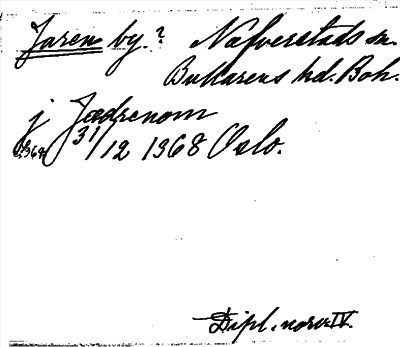 Jaren by.? Nafverstads sn.
Bullarens hd. Boh.
j Jædrenom
(1368) 31/12 1368 Oslo.
Dipl. norv. IV.